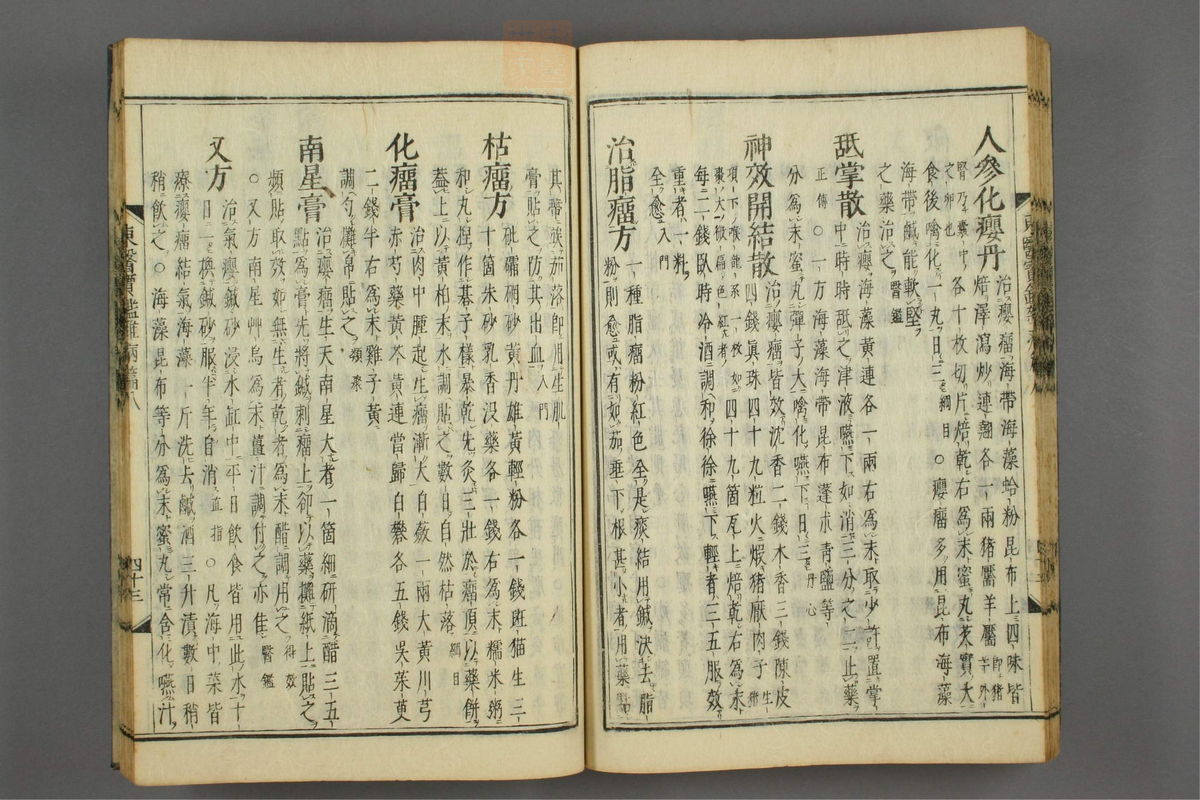 人參化癭丹
治癭瘤海帶海藻蛤粉昆布上四味皆
焙澤瀉炒連翹各一兩猪靨羊靨即猪羊外
腎乃囊中之卵也各十枚切片焙乾右爲末蜜丸芡實大
食後噙化一丸日三綱目○癭瘤多用昆布海藻
海帶鹹能軟堅
之藥治之醫鑑
舐掌散
治癭海藻黃連各一兩右爲末取少許置掌
中時時舐之津液嚥下如消三分之二止藥
正傳○一方海藻海帶昆布蓬朮靑鹽等
分爲末蜜丸彈子大噙化嚥下日三丹心
神效開結散
治癭瘤皆效沈香二錢木香三錢陳皮
四錢眞珠四十九粒火煆猪厭肉子生猪
項下喉系一枚如棗大微扁色紅者四十九箇瓦上焙乾右爲末
每二錢臥時冷酒調和徐徐嚥下輕者三五服效
重者一料
全愈入門
治脂瘤方
一種脂瘤粉紅色全是痰結用鍼決去脂
粉則愈或有如茄垂下根甚小者用藥點
其蒂俟茄落卽用生肌
膏貼之防其出血入門
枯瘤方
砒硇砂黃丹雄黃輕粉各一錢班猫生三
十箇朱砂乳香沒藥各一錢右爲末糯米粥
和丸捏作碁子樣暴乾先灸三壯於瘤頂以藥餅
蓋上以黃柏末水調貼之數日自然枯落綱目
化瘤膏
治肉中腫起生瘤漸大白蘞一兩大黃川芎
赤芍藥黃芩黃連當歸白礬各五錢吳茱萸
二錢半右爲末雞子黃
調勻攤帛貼之類聚
南星膏
治癭瘤生天南星大者一箇細硏滴醋三五
點爲膏先將鍼刺瘤上却以藥攤紙上貼之
頻貼取效如無生者乾者爲末醋調用之得效
○又方南星艸烏爲末薑汁調付之亦佳醫鑑
又方
治氣癭鍼砂浸水缸中平日飮食皆用此水十
日一換鍼砂服半年自消直指○凡海中菜皆
療癭瘤結氣海藻一斤洗去鹹酒三升漬數日稍
稍飮之○海藻昆布等分爲末蜜丸常含化嚥汁
東醫寶鑑雜病篇八
四十三